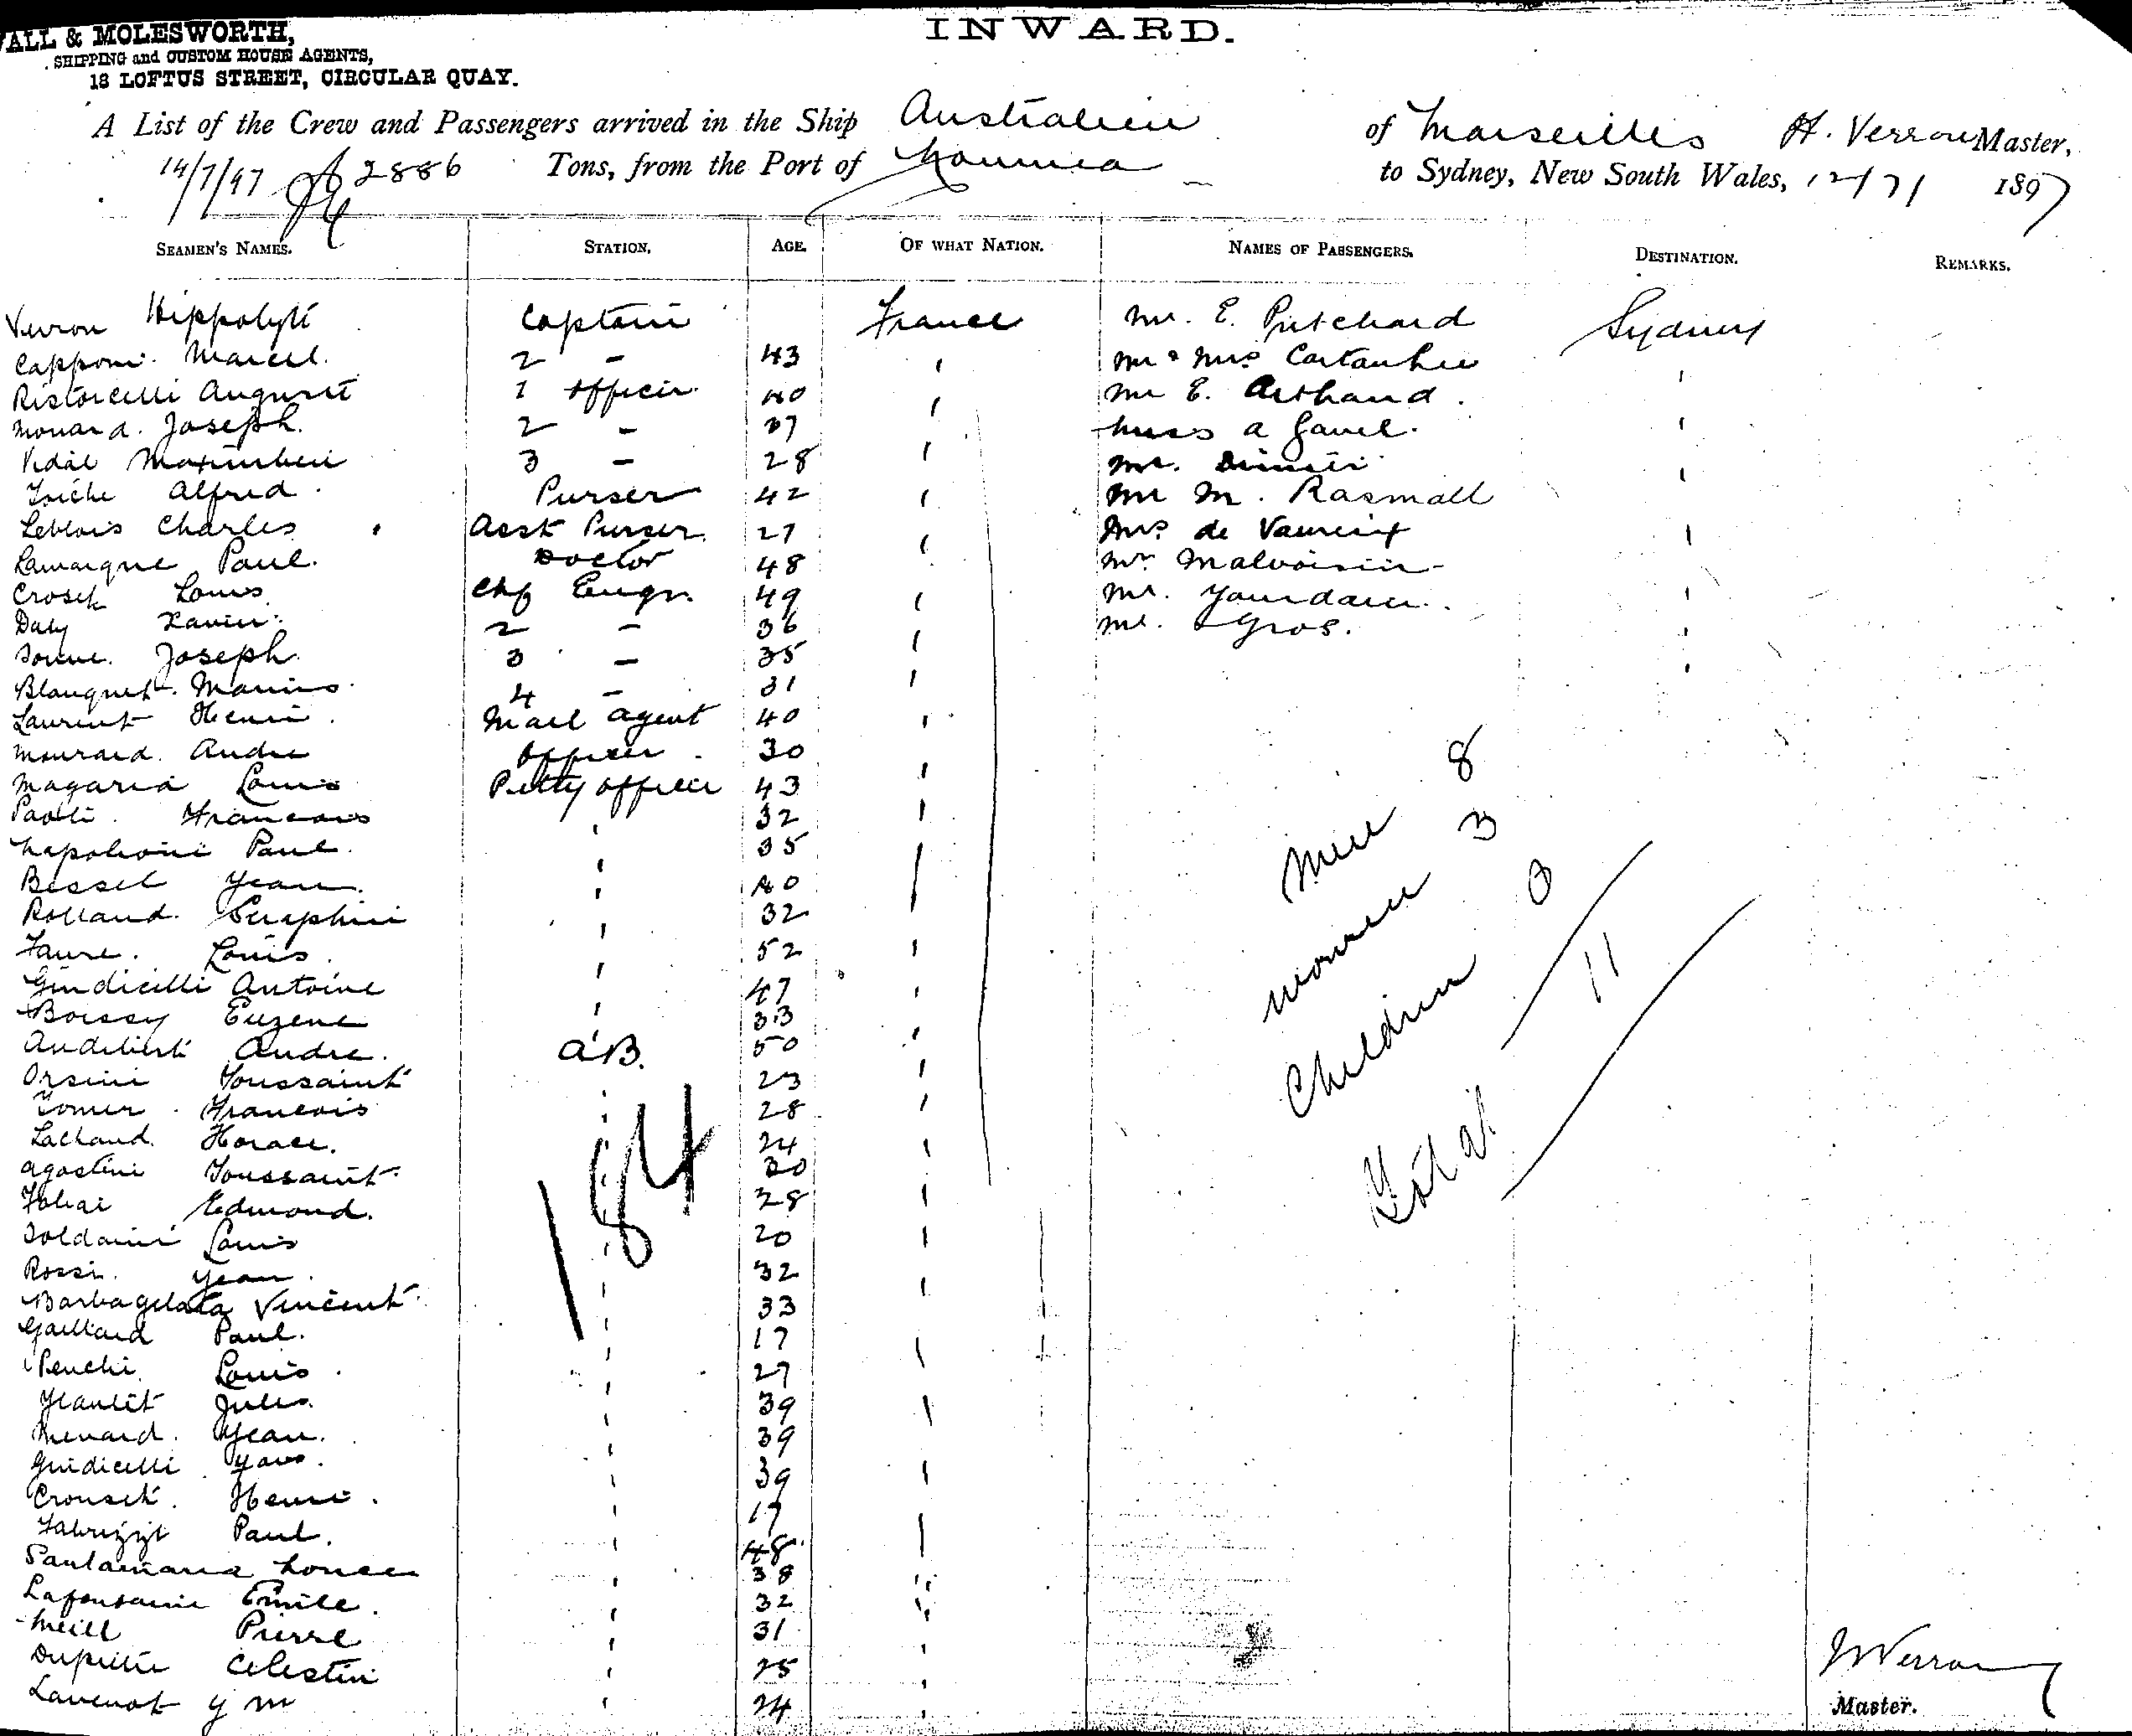 WALL & MOLESWORTH,
SHIPPING and CUSTOM HOUSE AGENTS,
18 LOFTUS STREET, CIRCULAR QUAY.
INWARD.
A List of the Crew and Passengers arrived in the Ship Australien of Marseilles H. Verron Master,
14/7/97 2886 Tons, from the Port of Noumea to Sydney, New South Wales, 12/7/ 1897
SEAMEN'S NAMES. STATION. AGE. OF WHAT NATION. NAMES OF PASSENGERS. DESTINATION. REMARKS.
Verron Hippolyte Captain France Mr. E. Pritchard Sydney
Capponi Marcel. 2 - 43 Mr & Mrs
Ristorcelli August 1 officer 40 Mr E. Arthaud.
Monard. Joseph. 2 - 37 Miss a
Vidal 3 - 28 Mr.
Alfred. Purser 42 Mr M. Rasmall
Leblois Charles Asst Purser 27 Mrs de
Lamarque Paul. Doctor 48 Mr Malvoisin
Louis Chf Engr. 49 Mr. Jourdain.
Daly Xavier 2 - 36 Mr. Gros.
Joseph 3 - 35
Blanquet. Marius 4 - 31
Laurent Henri. Mail agent 40
Mourard. Andre officer 30
Magaria Louis Petty officer 43
Paoli. Francois 32
Napoleoni Paul. 35
Bessel Jean. 40
Rolland. Seraphin 32
Faure. Louis. 52
Giudicelli Antoine 47
Boissy Eugene 33
Audibert Andre. A.B. 50
Orsini Toussaint 23
Francois 28
Lachaud. Horace. 24
Agostini Toussaint 30
Edmond. 28
Soldaini Louis 20
Rossi. Jean. 32
Barbagelata Vincent 33
Gaillard Paul. 17
Louis. 27
Jules. 39
Menard. Jean. 39
Guidicelli 39
Crouset. Henri. 17
Paul. 48
Santamaria 38
Lafontaine Emile. 32
Pierre 31
Celestin 25
J M 24
184
Men 8
Women 3
Children 0
Total 11
H Verron
Master.